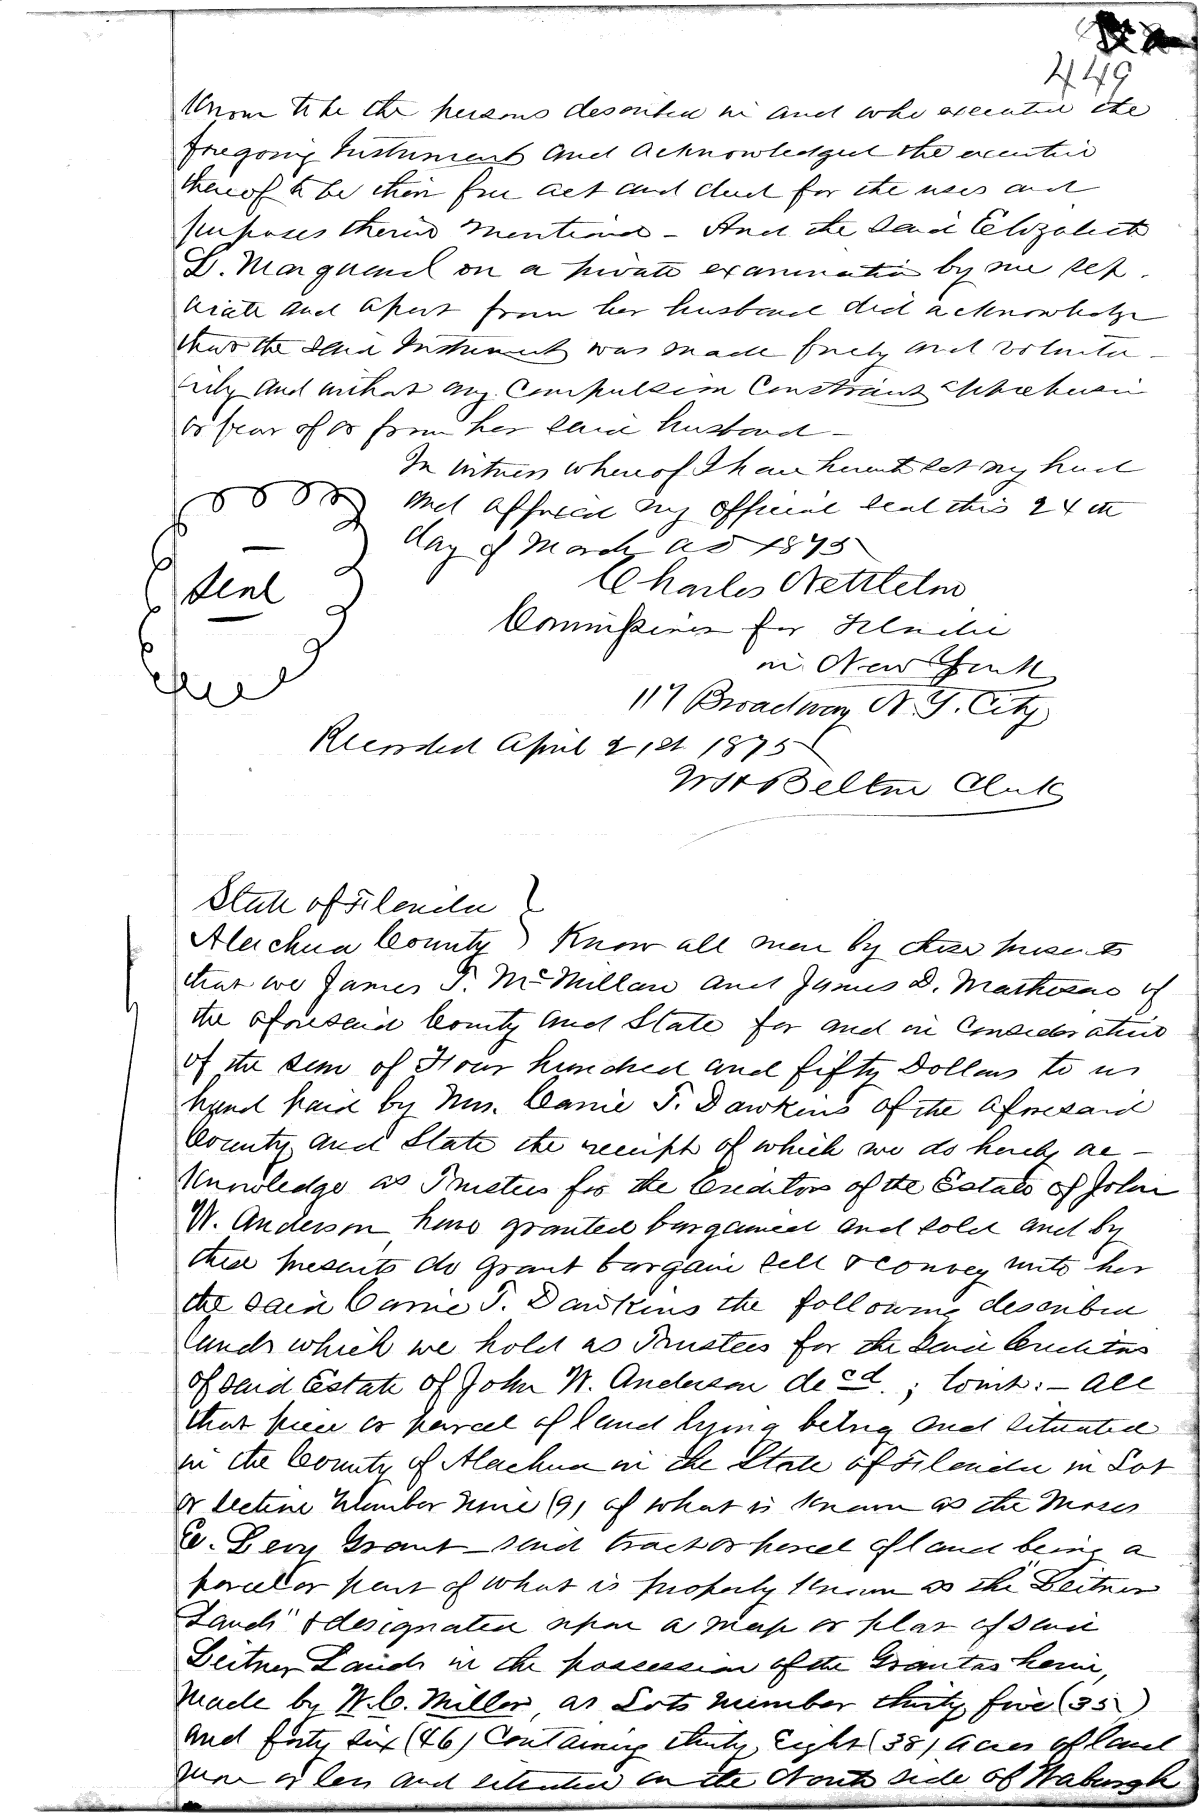 449
known to be the persons described in and who executed the
foregoing Instrument and acknowledged the execution
thereof to be their free act and deed for the uses and
purposes therein mentioned - And the said Elizabeth
L. Marquand on a private examination by me sep-
arate and apart from her husband did acknowledge
that the said Instrument was made freely and volunta-
rily and without any Compulsion Constraint apprehension
or fear of or from her said husband -
In witness whereof I have hereunto set my hand
and affixed my official seal this 24th
day of March AD 1875
Seal
Charles Nettleton
Commissioner for Florida
in New York
117 Broadway N.Y. City
Recorded April 21st 1875
Belton Clerk
State of Florida }
Alachua County } Know all men by these presents
that we James T. McMillan and James D. Matheson of
the aforesaid County and State for and in consideration
of the sum of Four hundred and fifty Dollars to us
hand paid by Mrs. Carrie T. Dawkins of the aforesaid
County and State the receipt of which we do hereby ac-
knowledge as Trustees for the Creditors of the Estate of John
W. Anderson, have granted bargained and sold and by
these presents do grant bargain sell & convey unto her
the said Carrie T. Dawkins the following described
lands which we hold as Trustees for the said Creditors
of said Estate of John W. Anderson decd.; towit:- All
that piece or parcel of land lying being and situated
in the County of Alachua in the State of Florida in Lot
or section Number Nine (9) of what is known as the Moses
E. Levy Grant - said tract or parcel of land being a
parcel or part of what is properly known as the "Leitner
Lands" & designated upon a map or plat of said
Leitner Lands in the possession of the Grantors herein,
made by W.C. Miller, as Lots number thirty five (35)
and forty six (46) Containing thirty Eight (38) acres of land
more or less and situated on the North side of Waburgh